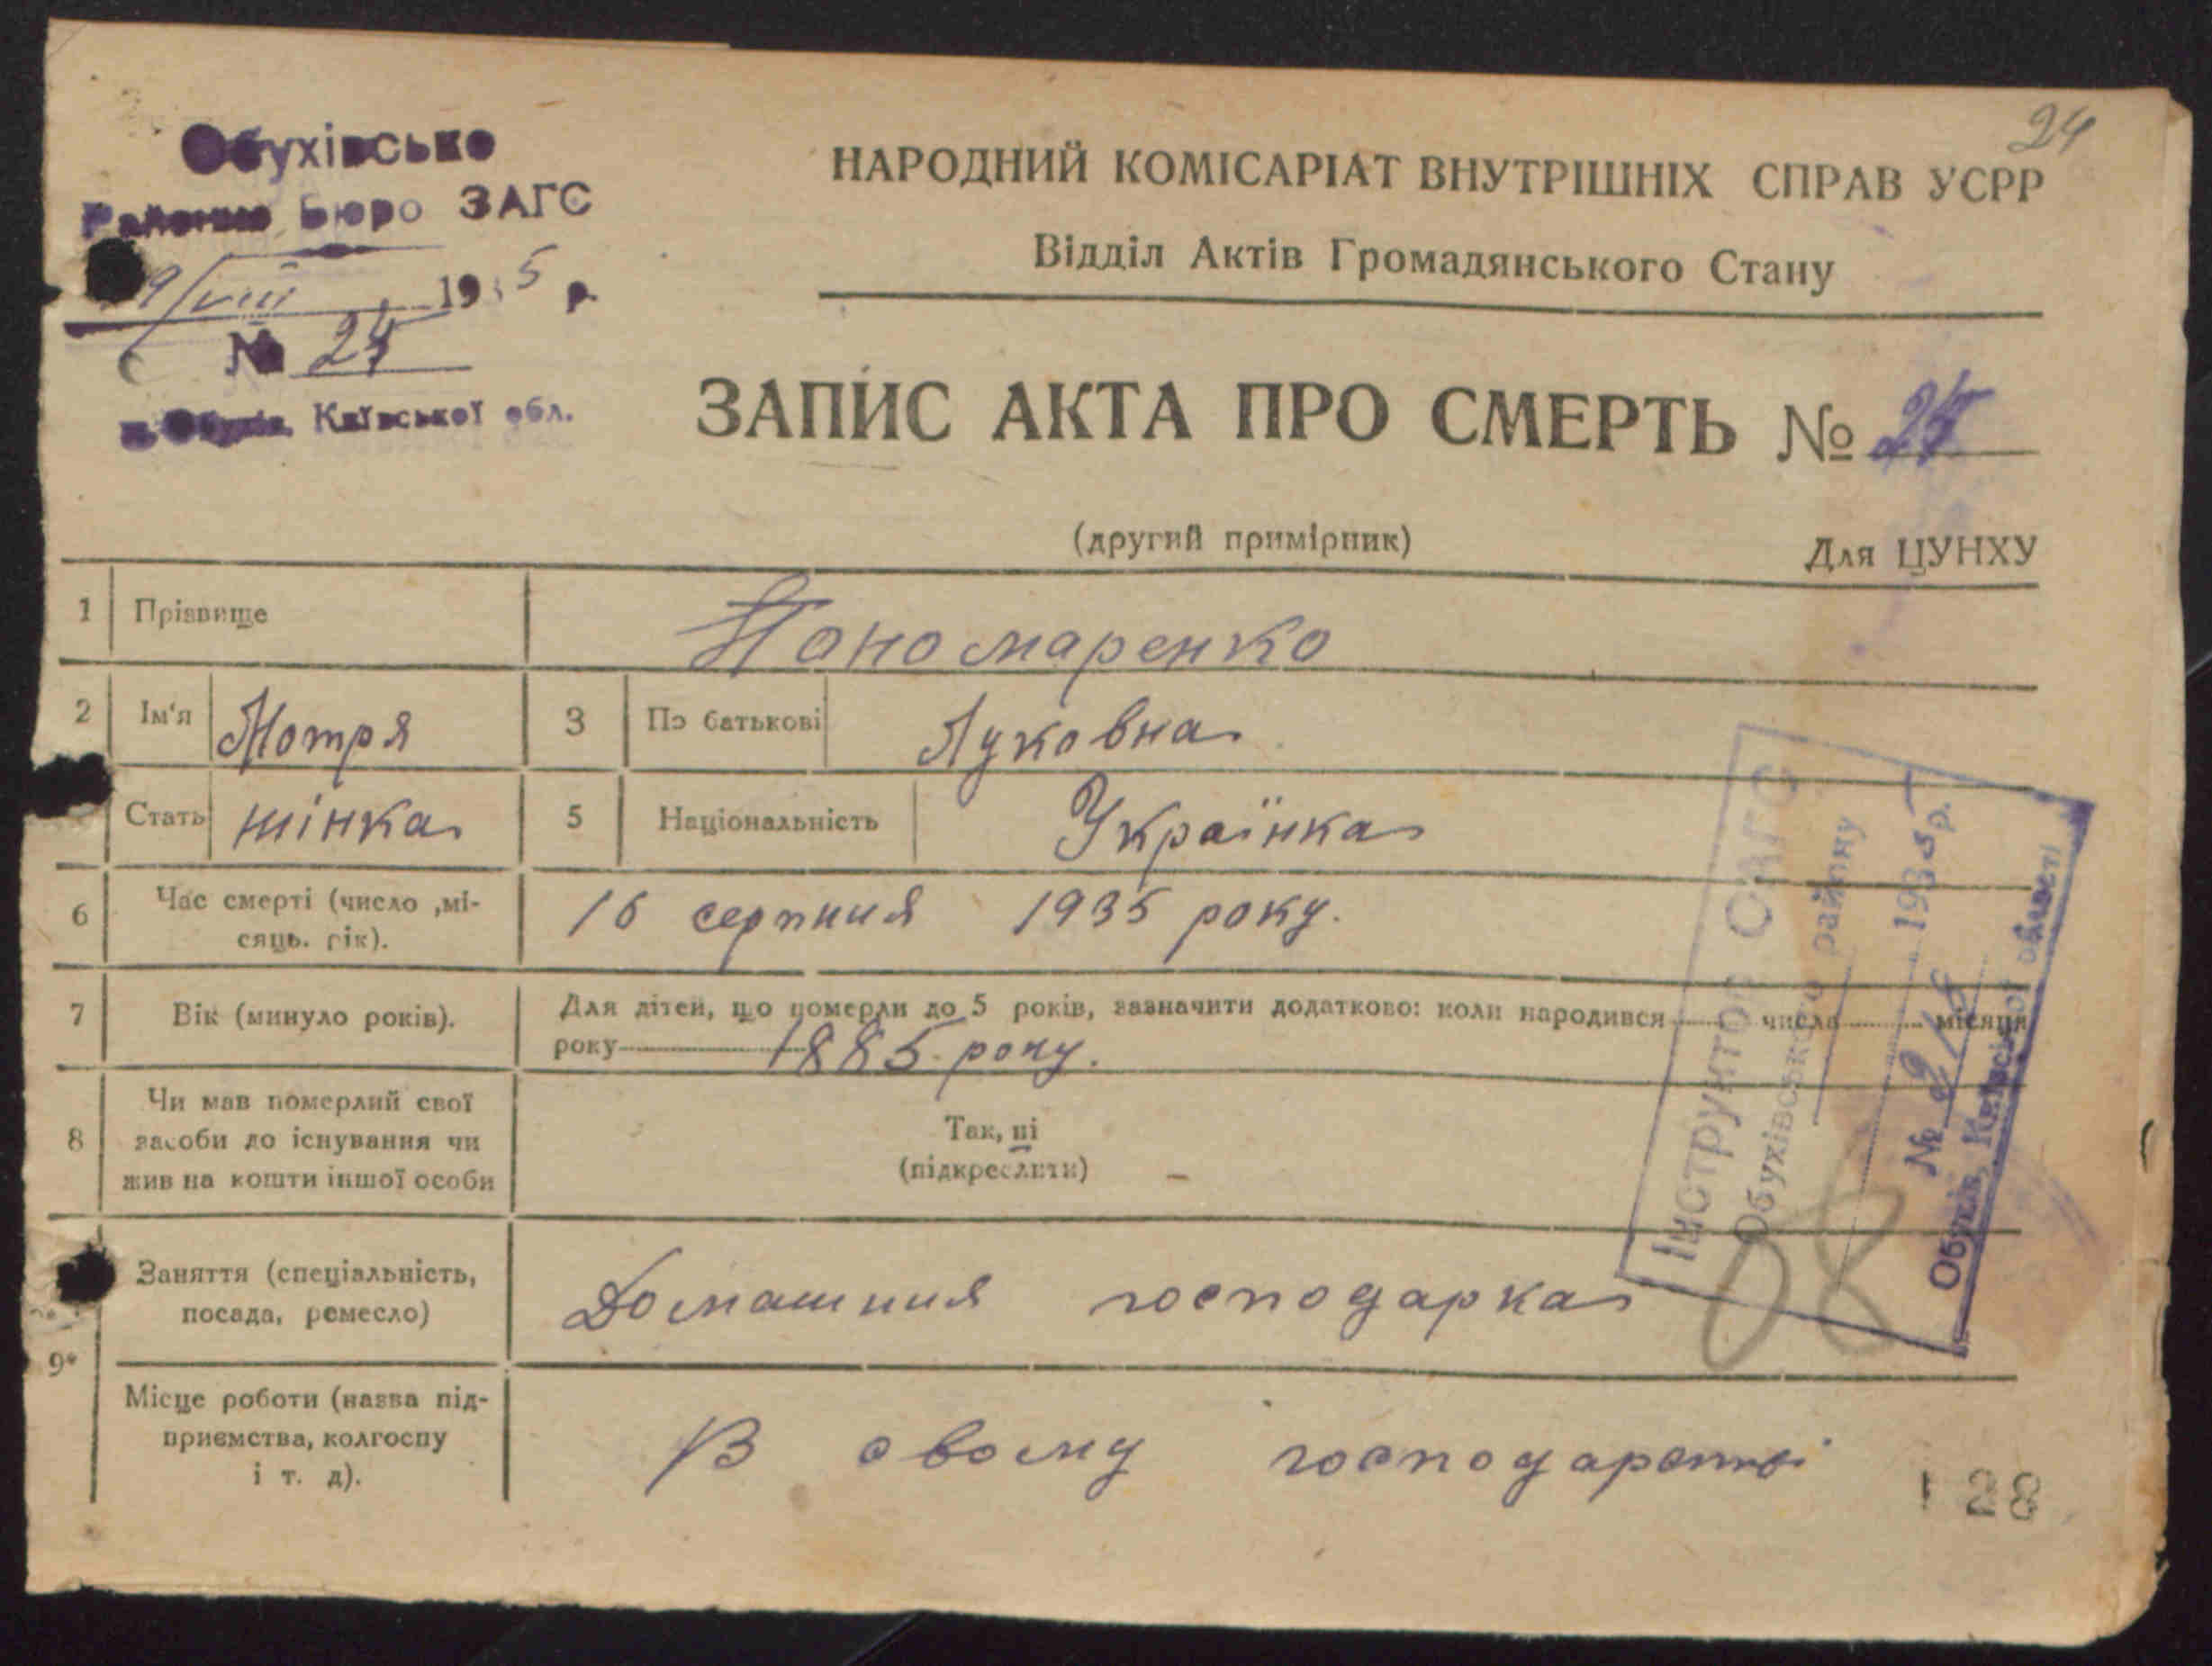 24
Обухівське
Районне Бюро ЗАГС
9/VIII 1935 р.
№ 24
м. Обухів, Київської обл.
НАРОДНИЙ КОМІСАРІАТ ВНУТРІШНІХ СПРАВ УСРР
Відділ Актів Громадянського Стану
ЗАПИС АКТА ПРО СМЕРТЬ №
(другий примірник) Для ЦУНХУ
1 Прізвище Пономаренко
2 Ім'я Мотря 3 По батькові Луковна
Стать жінка 5 Національність Українка
6 Час смерті (число ,мі-
сяць. рік). 16 серпния 1935 року.
7 Вік (минуло років). Для дітей, що померли до 5 років, зазначити додатково: коли народився числа місяця
року 1885 року.
8 Чи мав померлий свої
засоби до існування чи
жив на кошти іншої особи
Так, ні
(підкреслити)
9* Заняття (спеціальність,
посада, ремесло) Домашния господарка
Місце роботи (назва під-
приємства, колгоспу
і т. д).
В свому господарстві
Інструктор ЗАГС
Обухівського району
1935 р.
№ 2/8
Обухів, Київської області
98
128